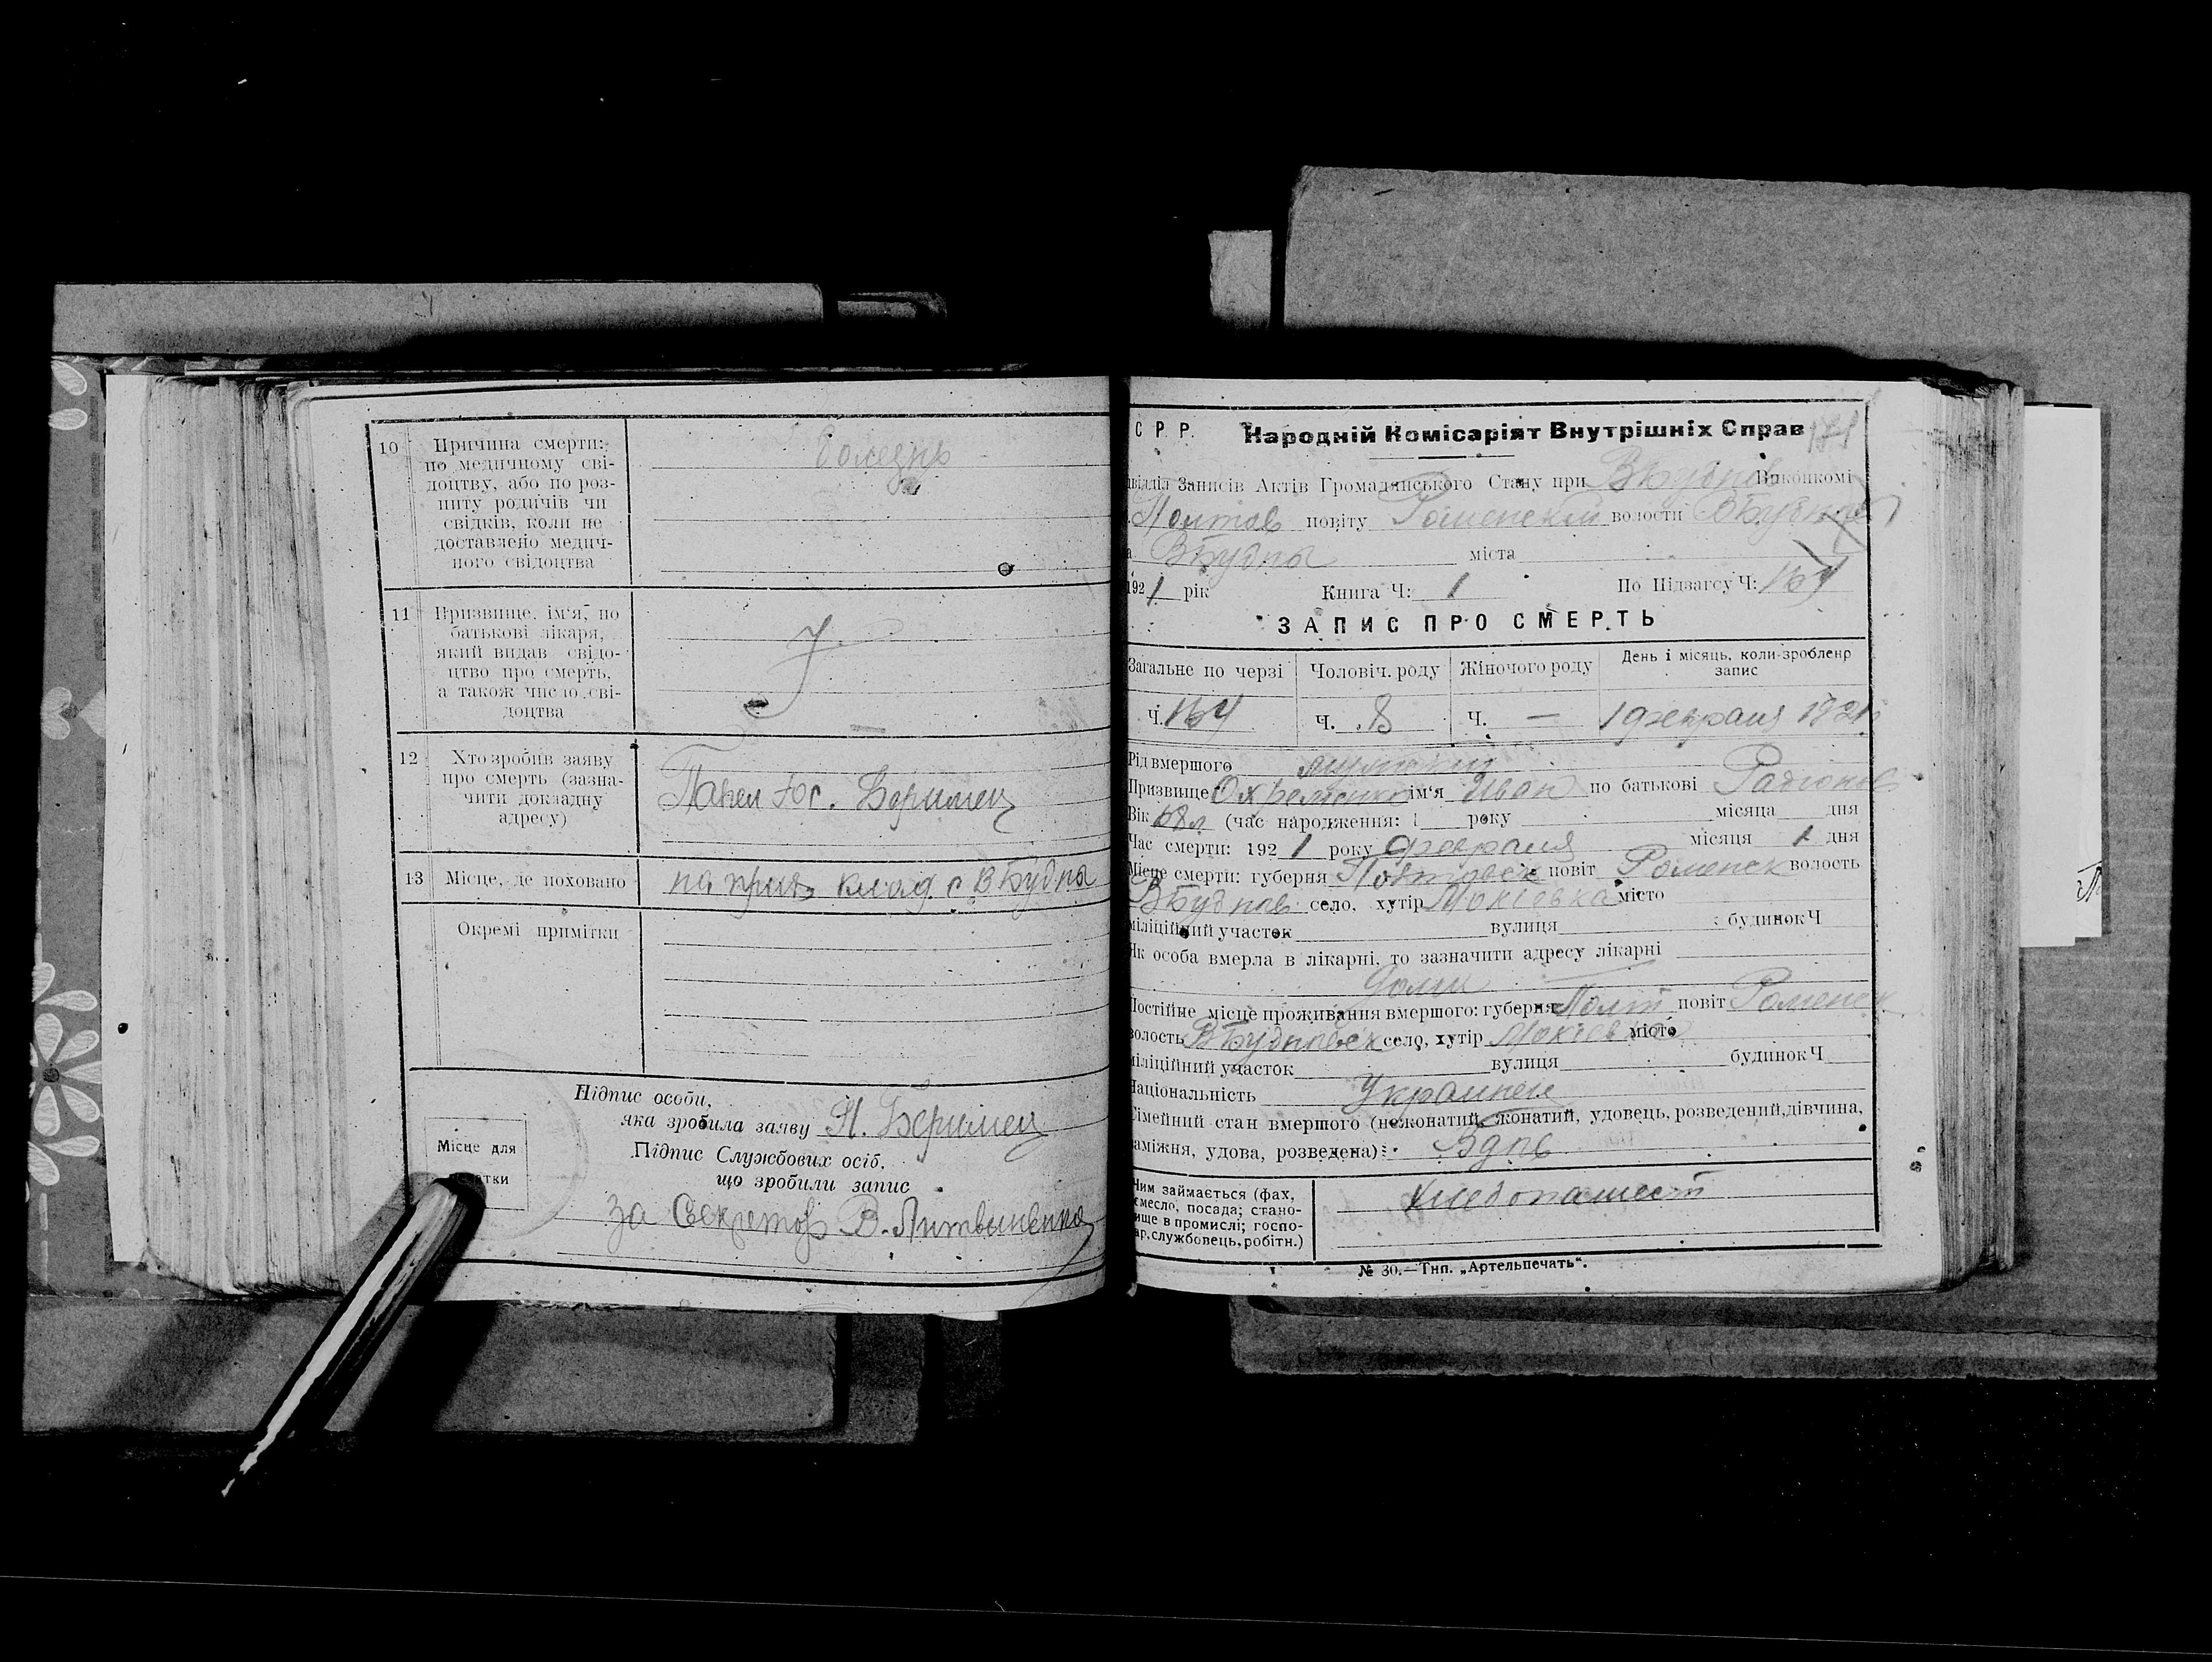 10 Причина смерти:
по медичному сві-
доцтву, або по роз-
питу родичів чи
свідків, коли не
доставлено медич-
ного свідоцтва
болезнь
11 Призвище, ім'я, по
батькові лікаря,
який видав свідо-
цтво про смерть,
а також число сві-
доцтва
12 Хто зробив заяву
про смерть (зазна-
чити докладну
адресу)
Павел Юс.
13 Місце, де поховано
на прих клад с ВБудна
Окремі примітки
Підпис особи,
яка зробила заяву
Місце для
Підпис Службових осіб,
що зробили запис
за Секретар В. Литвиненко
С Р Р. Народній Комісаріят Внутрішніх Справ 171
Записів Актів Громадянського Стану при Виконкомі
Полтав повіту Роменский волости
ВБудна міста
1921 рік Книга Ч: 1 По Підзагсу Ч: 164
ЗАПИС ПРО СМЕРТЬ
Загальне по черзі Чоловіч. роду Жіночого роду День і місяць, коли зроблено
запис
Ч. 164 Ч. 8 Ч. — 1 февраля 1921
Рід вмершого мужской
Призвище Охременко ім'я Иван по батькові Радионов
Вік 68 л (час народження: 1 року місяца дня
Час смерти: 1921 року февраля місяця 1 дня
Місце смерти: губерня Полтавск повіт Роменск волость
ВБуднов село, хутір Мокіевка місто
міліційний участок вулиця будинок Ч
Як особа вмерла в лікарні, то зазначити адресу лікарні
дома
Постійне місце проживання вмершого: губерня Полт повіт Роменск
волость ВБудновск село, хутір Мокіевка місто
міліційний участок вулиця будинок Ч
Національність Украинец
Сімейний стан вмершого (нежонатий, жонатий, удовець, розведений, дівчина,
заміжня, удова, розведена): Вдов
Чим займається (фах,
ремесло, посада; стано-
вище в промислі; госпо-
дар, службовець, робітн.)
Хлебопашест
№ 30.—Тип. „Артельпечать“.